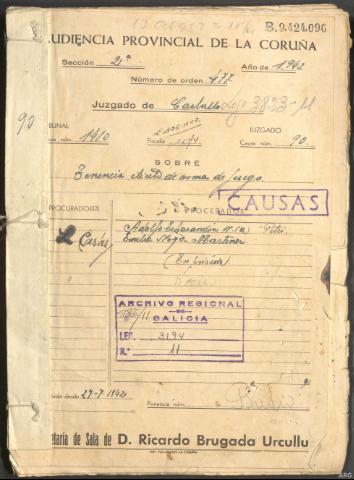 B.9.424.096
AUDIENCIA PROVINCIAL DE LA CORUÑA
Sección 2ª Año de 1942
Número de orden 477
Juzgado de Carballo 3823-11
90
TRIBUNAL JUZGADO
Causa núm. 1410 Fiscalía 1074 Causa núm. 90
SOBRE
Tenencia ilícita de arma de fuego.
CAUSAS
PROCURADORES PROCESADOS
Adolfo
Emilio Moya Martínez
Casás
(En prisión)
ARCHIVO REGIONAL
DE
GALICIA
LEG. 3194
N.º 11
desde 27-7-1942
Ponencia núm.
Secretaría de Sala de D. Ricardo Brugada Urcullu
ARG